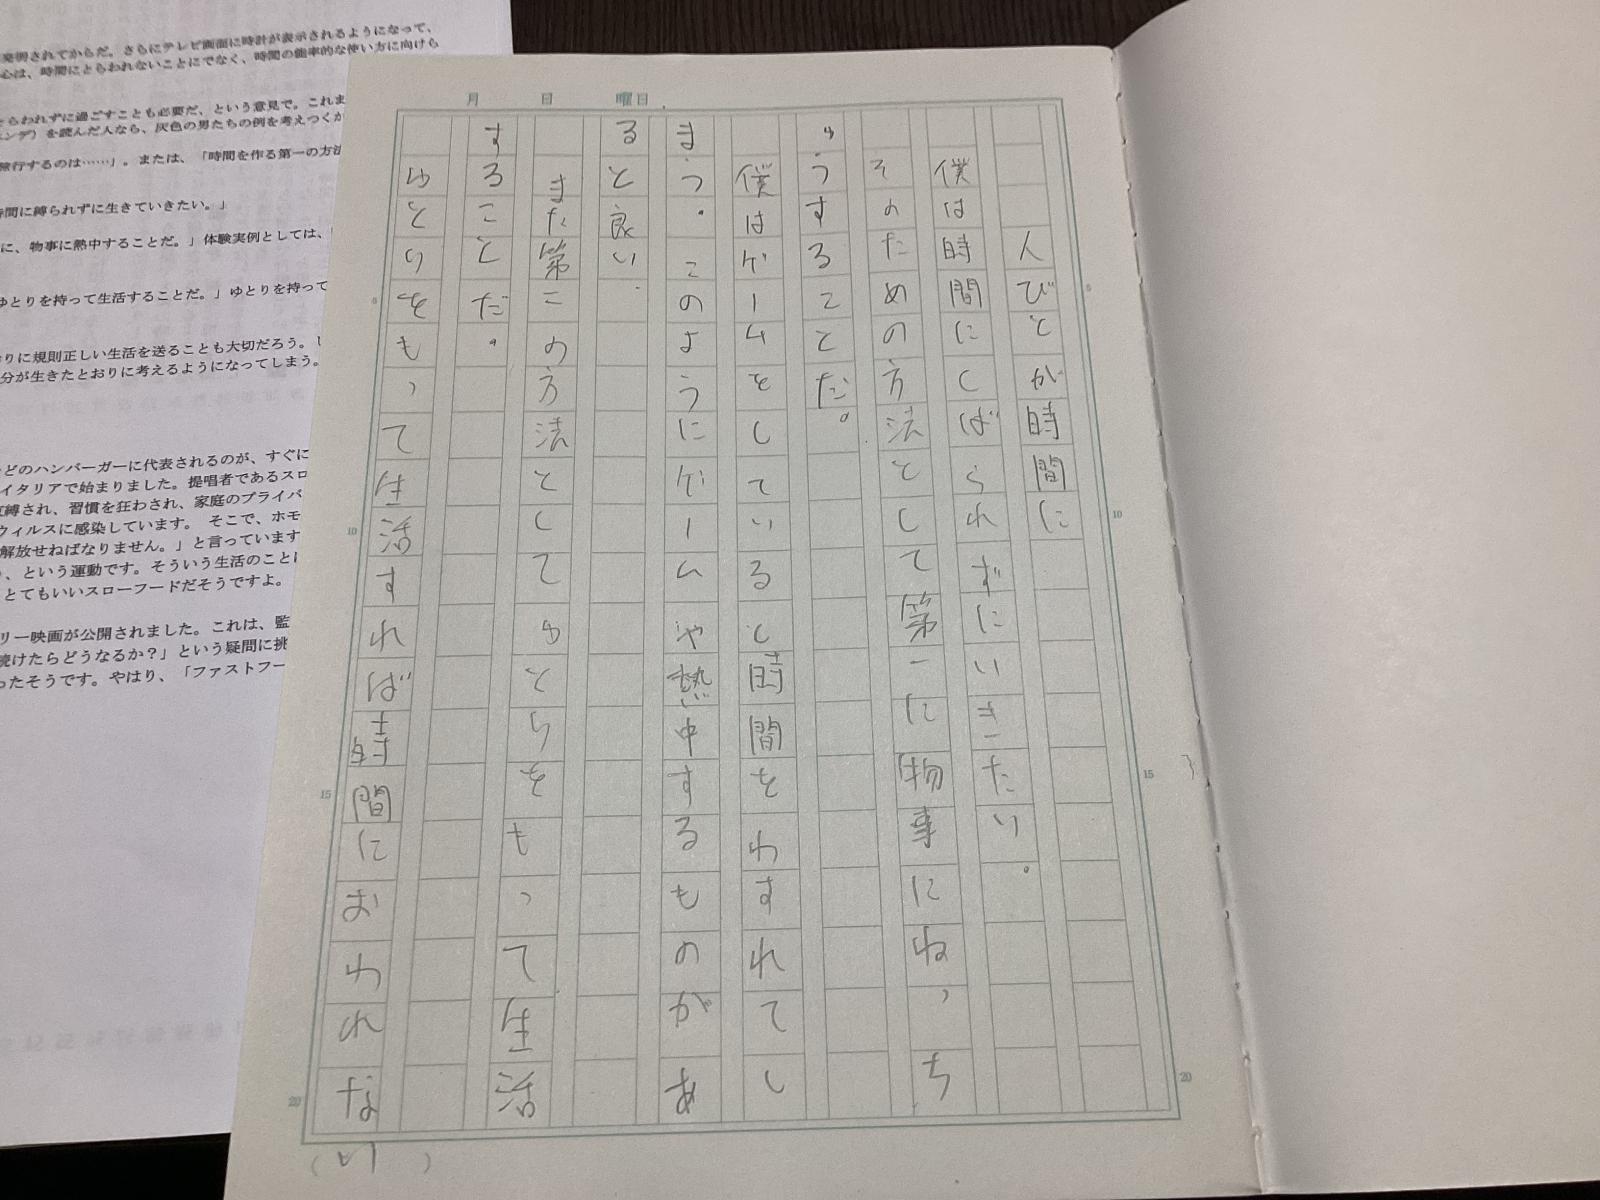 人びとが時間に
僕は時間にしばられずにいきたい。
そのための方法として第一に物事にねっち
ゅうすることだ。
僕はゲームをしていると時間をわすれてし
まう。このようにゲームや熱中するものがあ
ると良い.
また第二の方法としてゆとりをもって生活
することだ。
ゆとりをもって生活すれば時間におわれな
い
月 日 曜日
5
10
15
20
5
10
15
20
発明されてからだ。さらにテレビ画面に時計が表示されるようになって、
心は、時間にとらわれないことにでなく、時間の能率的な使い方に向けら
とらわれずに過ごすことも必要だ、という意見で。これま
エンデ）を読んだ人なら、灰色の男たちの例を考えつくか
旅行するのは……」。または、「時間を作る第一の方法
時間に縛られずに生きていきたい。」
に、物事に熱中することだ。」体験実例としては、
ゆとりを持って生活することだ。」ゆとりを持って
りに規則正しい生活を送ることも大切だろう。
分が生きたとおりに考えるようになってしまう。
などのハンバーガーに代表されるのが、すぐに
イタリアで始まりました。提唱者であるスロ
束縛され、習慣を狂わされ、家庭のプライバ
ウィルスに感染しています。 そこで、ホモ
解放せねばなりません。」と言っています
、という運動です。そういう生活のことに
とてもいいスローフードだそうですよ。
リー映画が公開されました。これは、監
続けたらどうなるか？」という疑問に挑
ったそうです。やはり、「ファストフー